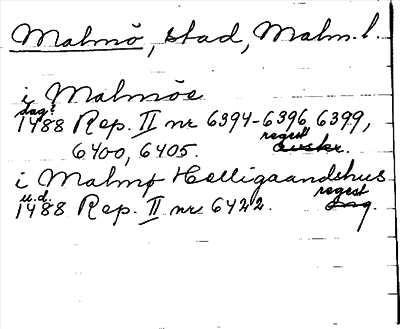 Malmö, stad, Malm. l.
i Malmöe
dag?
1488 Rep. II nr 6394-6396, 6399,
regest
6400, 6405. avskr.
i Malmø Helligaandshus
u.d. regest
1488 Rep. II nr 6422. orig.